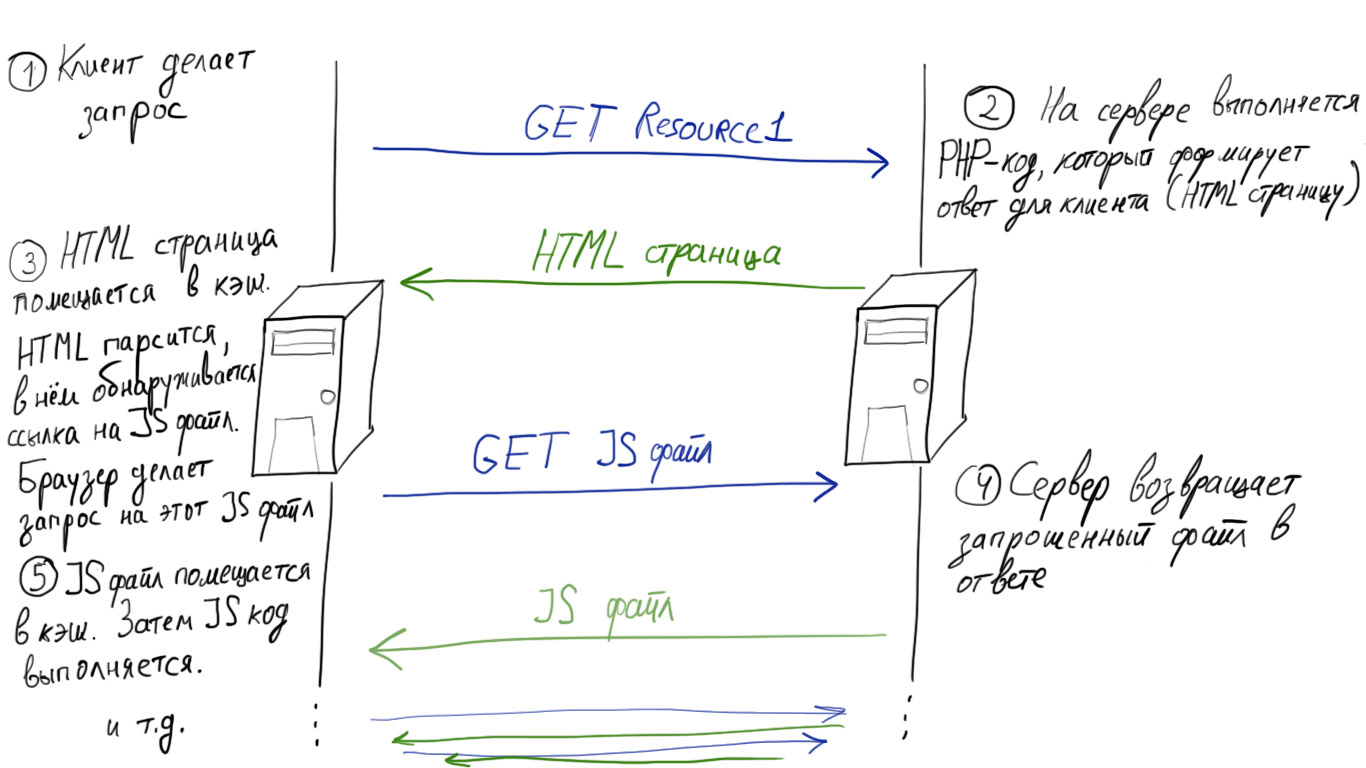 ① Клиент делает
запрос
GET Resource1
② На сервере выполняется
PHP-код, который формирует
ответ для клиента (HTML страницу)
HTML страница
③ HTML страница
помещается в кэш.
HTML парсится,
в нём обнаруживается
ссылка на JS файл.
Браузер делает
запрос на этот JS файл
GET JS файл
④ Сервер возвращает
запрошенный файл в
ответе
JS файл
⑤ JS файл помещается
в кэш. Затем JS код
выполняется.
и т.д.